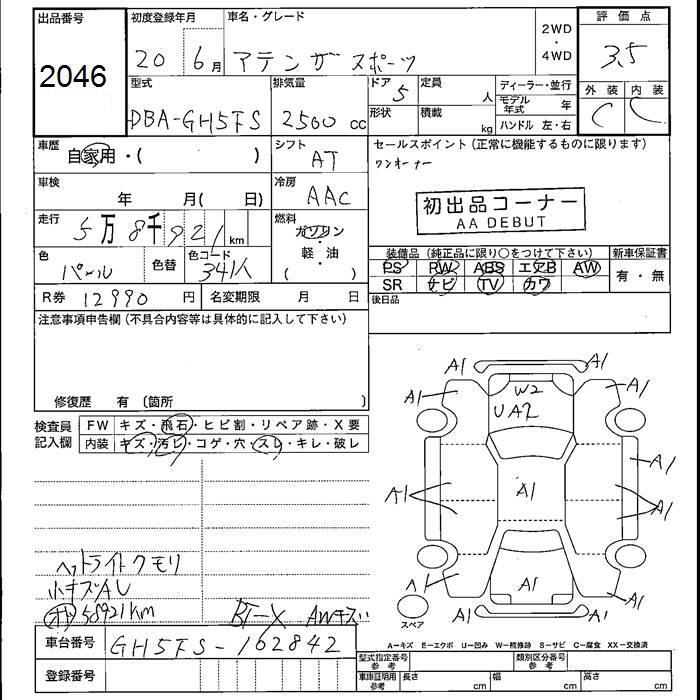 出品番号
2046
初度登録年月
20 6月
車名・グレード
アテンザ スポーツ
2WD
・
4WD
評価点
3.5
外装 内装
C C
型式
DBA-GH5FS
排気量
2500 cc
ドア
5
形状
定員
人
積載
kg
ディーラー・並行
モデル年式 年
ハンドル 左・右
車歴
自家用・( )
シフト
AT
車検
年 月( 日)
冷房
AAC
走行
5万8千921km
燃料
ガソリン
・
軽・油
( )
色
パール
色替
色コード
34K
R券 12990 円
名変期限 月 日
セールスポイント(正常に機能するものに限ります)
ワンオーナー
初出品コーナー
AA DEBUT
装備品(純正品に限り○をつけて下さい)
PS RW ABS エアB AW
SR ナビ TV カワ
新車保証書
有・無
後日品
注意事項申告欄(不具合内容等は具体的に記入して下さい)
修復歴 有 (箇所 )
検査員記入欄
FW キズ・飛石・ヒビ割・リペア跡・X要
内装 キズ・汚レ・コゲ・穴・スレ・キレ・破レ
ヘットライトクモリ
小キズAU
58921km
AWキズ
A1
A1
A1
A1
W2
UA2
A1
A1
A1
A1
A1
A1
A1
A1
スペア
車台番号 GH5FS-162842
登録番号
A-キズ E-エクボ U-凹み W-補修跡 S-サビ C-腐食 XX-交換済
型式指定番号 参考
類別区分番号 参考
車庫証明用 参考
長さ cm
幅 cm
高さ cm